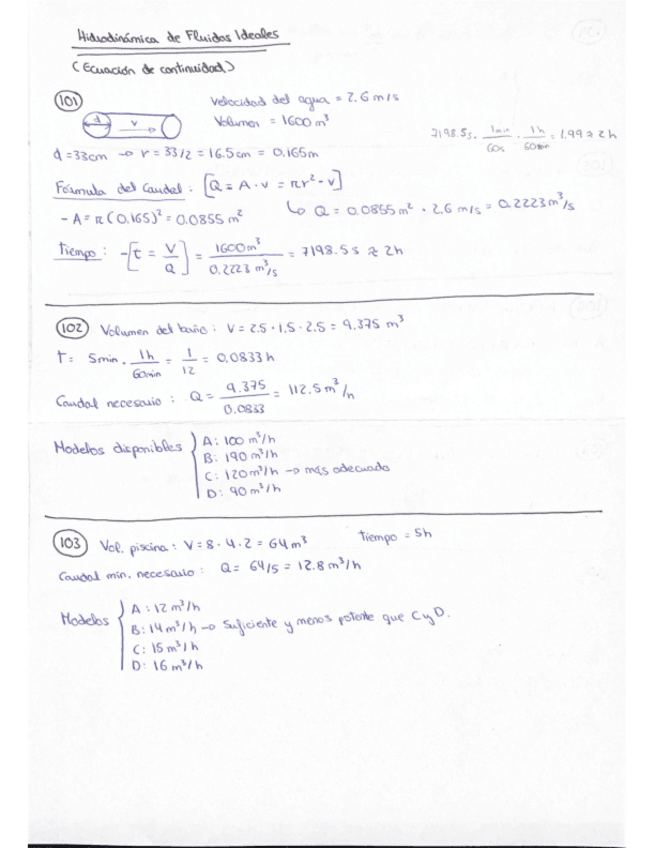 Hidrodinámica de Fluidos Ideales
(Ecuación de continuidad)
101
d
v
Velocidad del agua = 2.6 m/s
Volumen = 1600 m³
7198.5s. 1min/60s . 1h/60min = 1.99 ≈ 2h
d = 33cm → r = 33/2 = 16.5cm = 0.165m
Fórmula del Caudal: [Q = A · v = πr² · v]
- A = π(0.165)² = 0.0855 m²
↳ Q = 0.0855 m² · 2.6 m/s = 0.2223 m³/s
Tiempo: - [t = V/Q] = 1600m³/0.2223 m³/s = 7198.5s ≈ 2h
102 Volumen del baño: V = 2.5 · 1.5 · 2.5 = 9.375 m³
T = 5min · 1h/60min = 1/12 = 0.0833 h
Caudal necesario: Q = 9.375/0.0833 = 112.5 m³/h
Modelos disponibles
A: 100 m³/h
B: 190 m³/h
C: 120 m³/h → más adecuado
D: 90 m³/h
103 Vol. piscina: V = 8 · 4 · 2 = 64 m³
tiempo = 5h
Caudal min. necesario: Q = 64/5 = 12.8 m³/h
Modelos
A: 12 m³/h
B: 14 m³/h → Suficiente y menos potente que C y D.
C: 15 m³/h
D: 16 m³/h